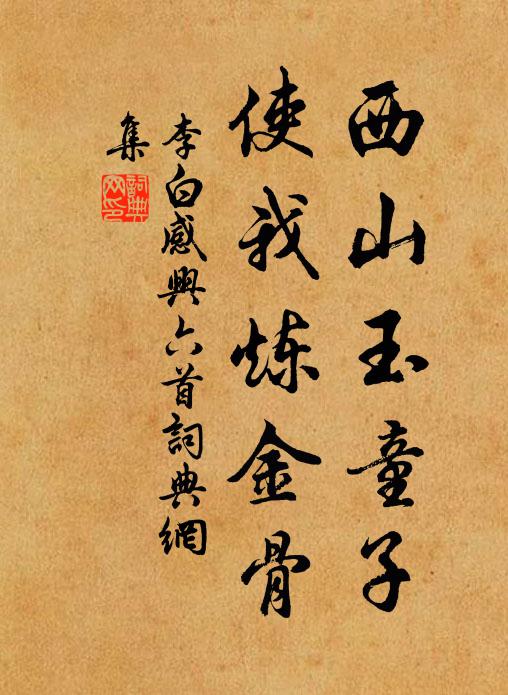 西山玉童子
使我炼金骨
李白感興六首詞典網
集
詞典
网印